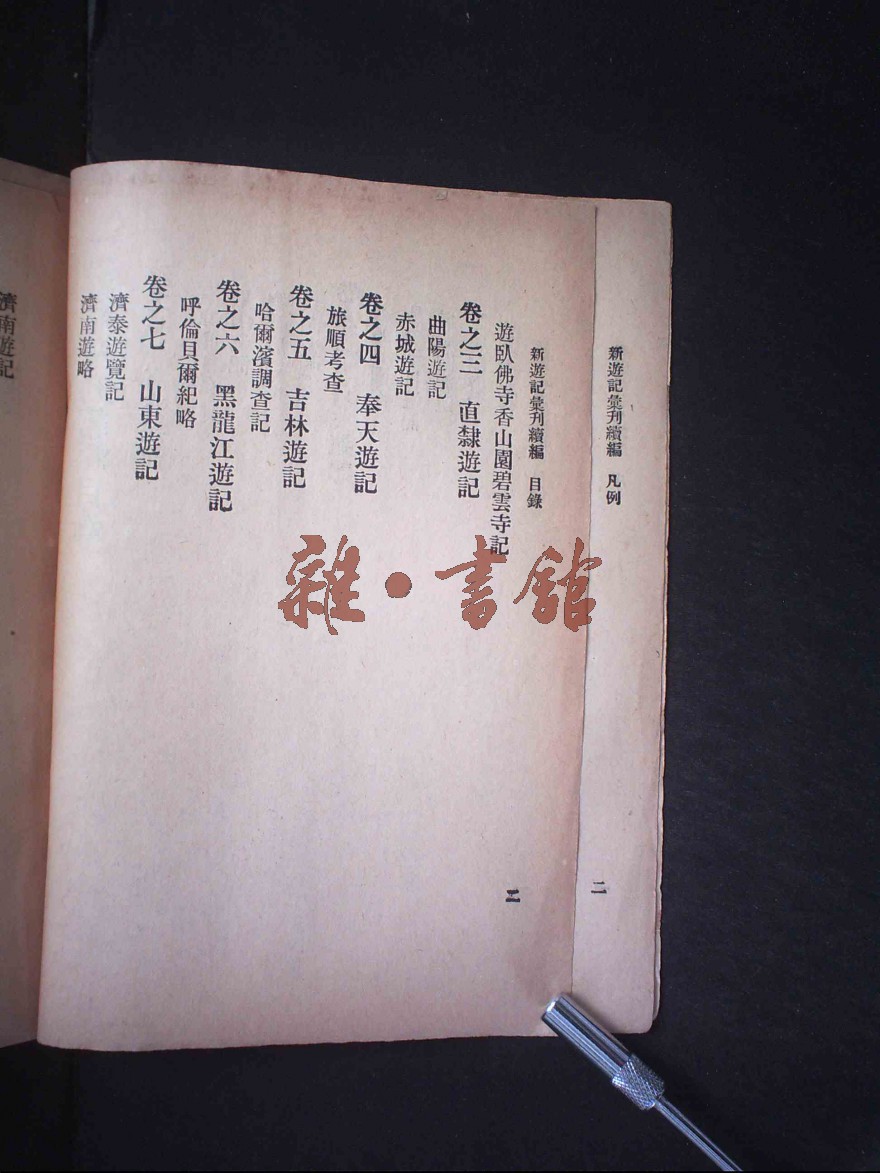 新遊記彙刋續編　凡例
二
新遊記彙刋續編　目錄
二
遊臥佛寺香山園碧雲寺記
卷之三　直隸遊記
曲陽遊記
赤城遊記
卷之四　奉天遊記
旅順考查
卷之五　吉林遊記
哈爾濱調查記
卷之六　黑龍江遊記
呼倫貝爾紀略
卷之七　山東遊記
濟泰遊覽記
濟南遊略
濟南遊記
雜·書館